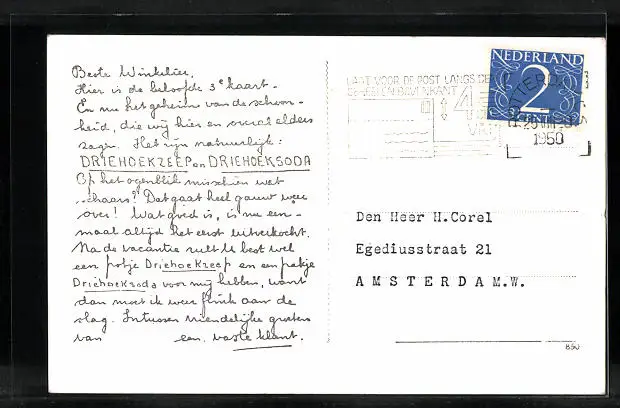 Beste Winkelier,
Hier is de beloofde 3e kaart.
En nu het geheim van de schoon-
heid, die wij hier en overal elders
zagen. Het zijn natuurlijk:
DRIEHOEKZEEP en DRIEHOEKSODA
Op het ogenblik misschien wat
schaars? Dat gaat heel gauw weer
over! Wat goed is, is nu een-
maal altijd het eerst uitverkocht.
Na de vacantie zult U best wel
een potje Driehoekzeep en een pakje
Driehoeksoda voor mij hebben, want
dan moet ik weer flink aan de
slag. Intussen vriendelijke groeten
van een vaste klant.
NEDERLAND
2
CENT
LAAT VOOR DE POST LANGS DE
BOVENKANT
4
1950
Den Heer H.Corel
Egediusstraat 21
AMSTERDAM.W.
850